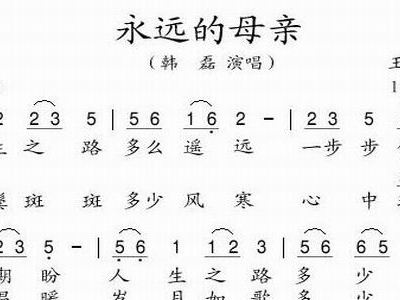 永远的母亲
（韩 磊 演唱）
王
1
2 2 3 5 | 5 6 1 6 2 - | 2 3 5
生 之 路 多么 遥 远 一步 步
斑 斑 多少 风 寒 心 中
2 3 5 - | 5 6 1 1 2 | 5 6 6 5
期 盼 人 生 之 路 多 少
暖 岁 月 如 歌 多 少